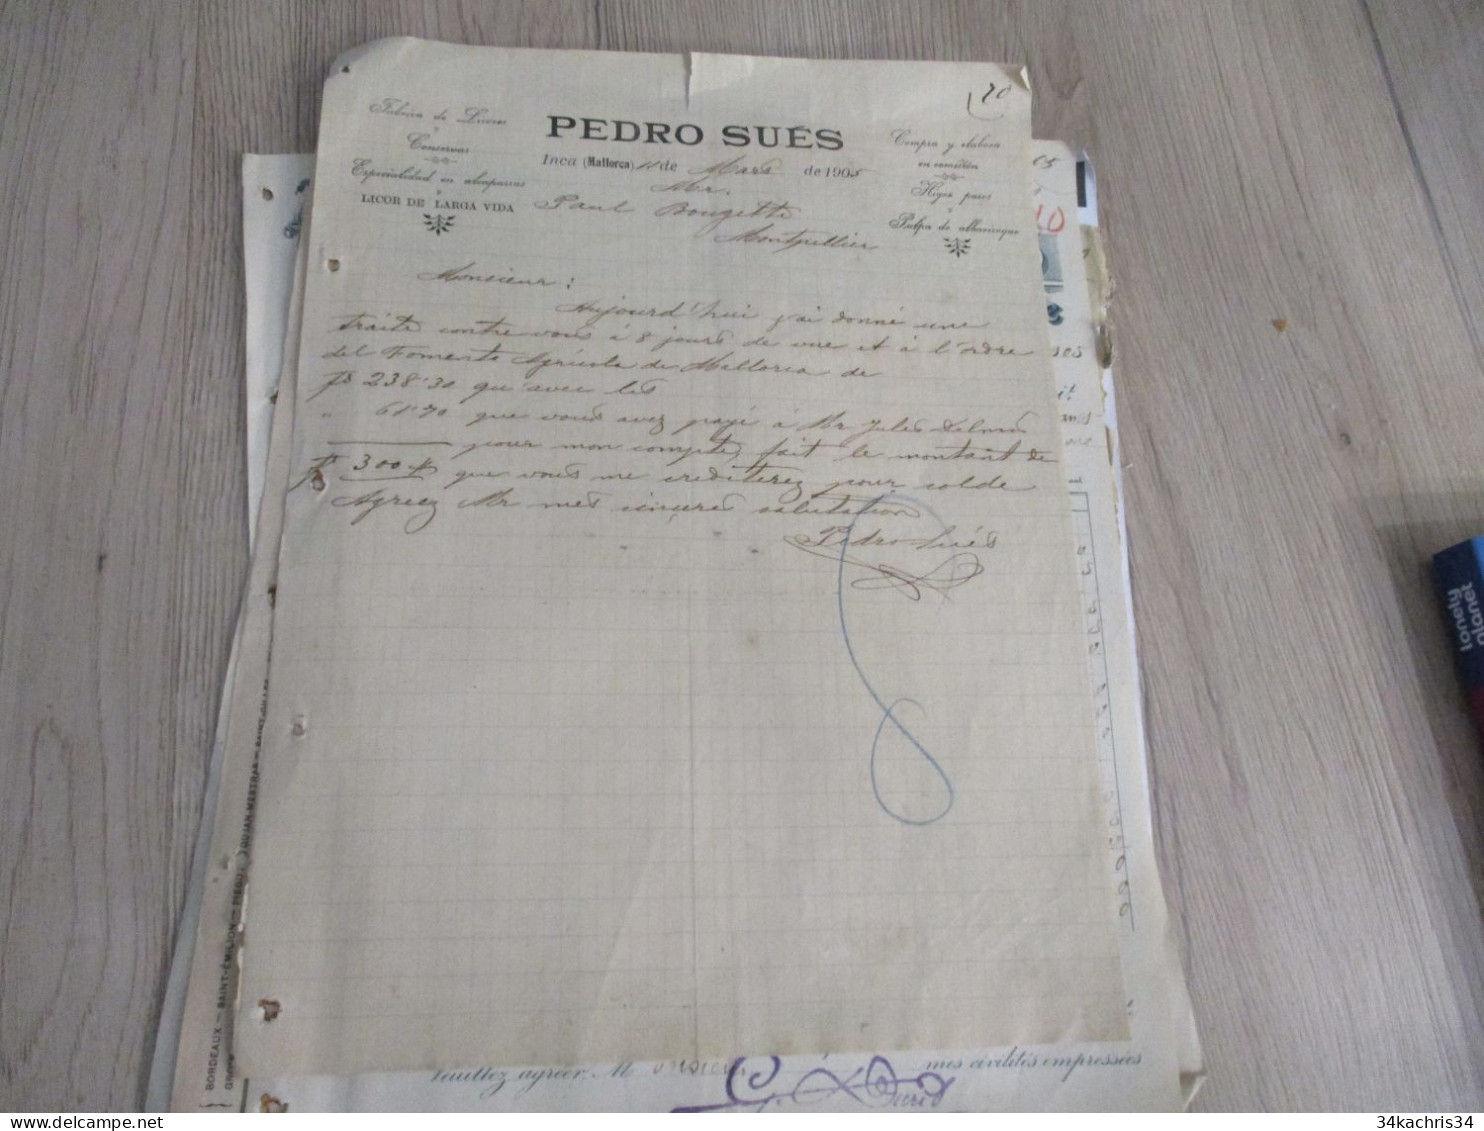 20
Fabrica de Licores
y
Conservas
Especialidad en alcaparras
y
LICOR DE LARGA VIDA
PEDRO SUÉS
Inca (Mallorca) 11 de Mars de 1905
Compra y elabora
en comisión
Higos pasos
y
Pulpa de albaricoque
Mr.
Paul Bougette
Montpellier
Monsieur:
Aujourd'hui j'ai donné une
traite contre vous à 8 jours de vue et à l'ordre
del Fomento Agrícola de Mallorca de
238'30 qu'avec les
" 61'70 que vous avez payé à Mr Jules
pour mon compte, fait le montant de
300 que vous me crediterez pour solde
Agreez Mr mes sinceres salutation
Pedro Sués
BORDEAUX — SAINT-ÉMILION
Veuillez agréer, M onsieur mes civilités empressées
lonely
planet
34kachris34